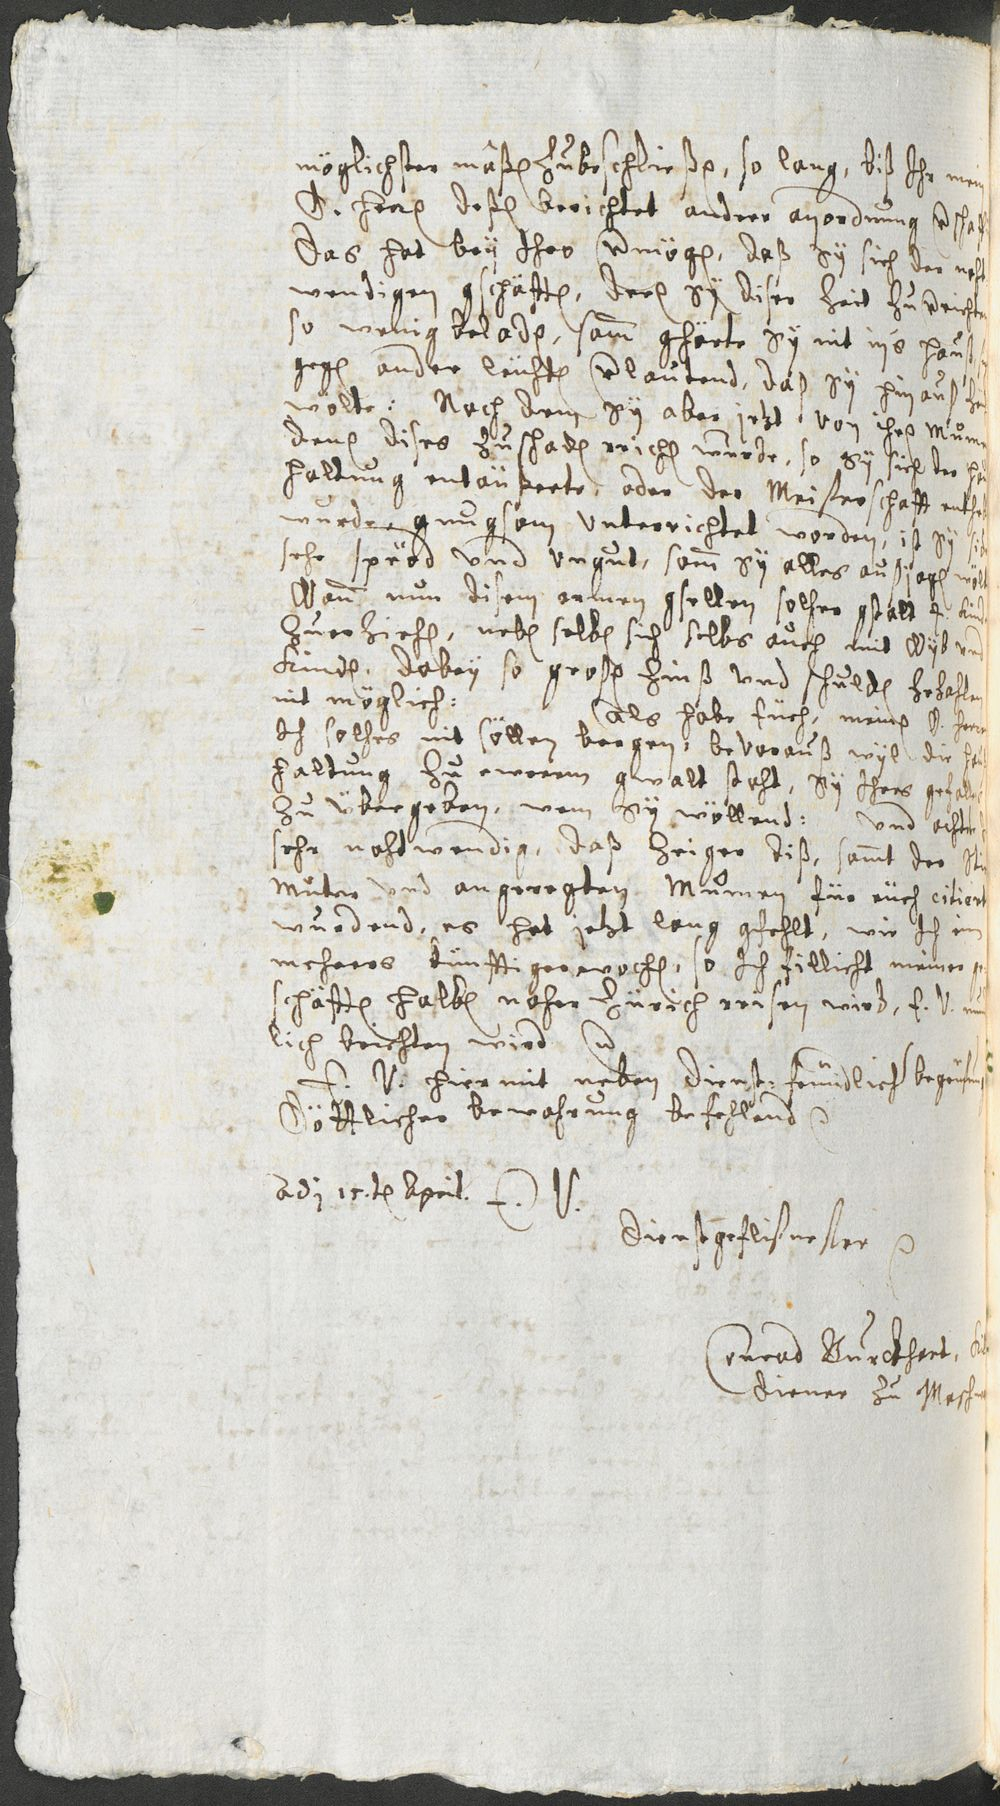 möglichster maßen zubeschließen, so lang, biß Ihr mein
G. Herren deßen berichtet andere anordnung verschaff
Das hat bey Ihro vermögen, daß sy sich der noht
wendigen gschäfften, deren sy diser Zeit zu verrichten
so wenig beladen, sam ghörte sy nit in's hauß,
gegen andern leuthen verlautend, daß sy hinauß
wölte: Nach dem sy aber jetzt von ihren Mumen
denen dises zu schaden reichen wurde, so sy sich der hauß
haltung entäußerte, oder der Meisterschafft
wurde gnugsam unterrichtet worden, ist sy
sehr spröd und ungut, sam sy alles außjagen wölt
Wann nun disem armen gsellen solher gstalt f. kind
zuerziehen, neben selben sich selbs auch mit Wyb und
Kinden, dabey so großen Zinß und schulden behafften
nit möglich: Als habe Euch, meine G. Herren
Ich solhes nit söllen bergen, bevorauß wyl die hauß
haltung zu ewerem gwalt staht, sy Ihres gefallens
zu übergeben, wem sy wöllend: Und achte
sehr nohtwendig, daß Zeiger diß, samt der
Muter und angeregten Mumen für euch citiert
wurdend, es hat jetzt lang gfehlt, wie Ich im
mehrers künfftiger wochen, so Ich fillicht meiner ge
schäfften halben naher Zürich reisen wird, E. V. münd
lich brichten wird
E. V. hiermit neben dienst-freundlich begrüßung
Göttlicher bewahrung befehlend
Adj 15.ten April. E. V.
dienstgeflißnester
Conrad Burckhart,
diener zu Masch